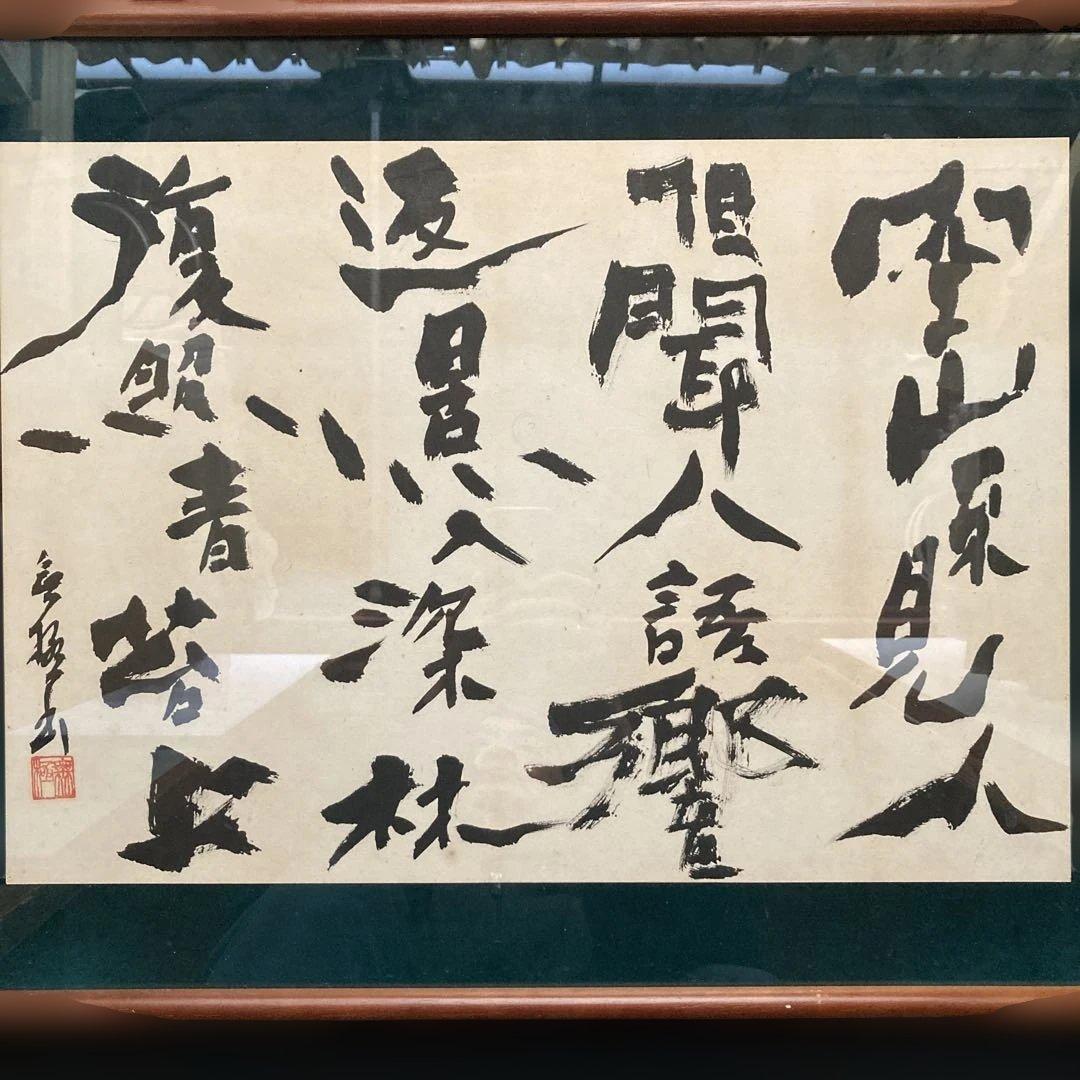 空山不見人
但聞人語響
返景入深林
復照青苔上
無極書
無極